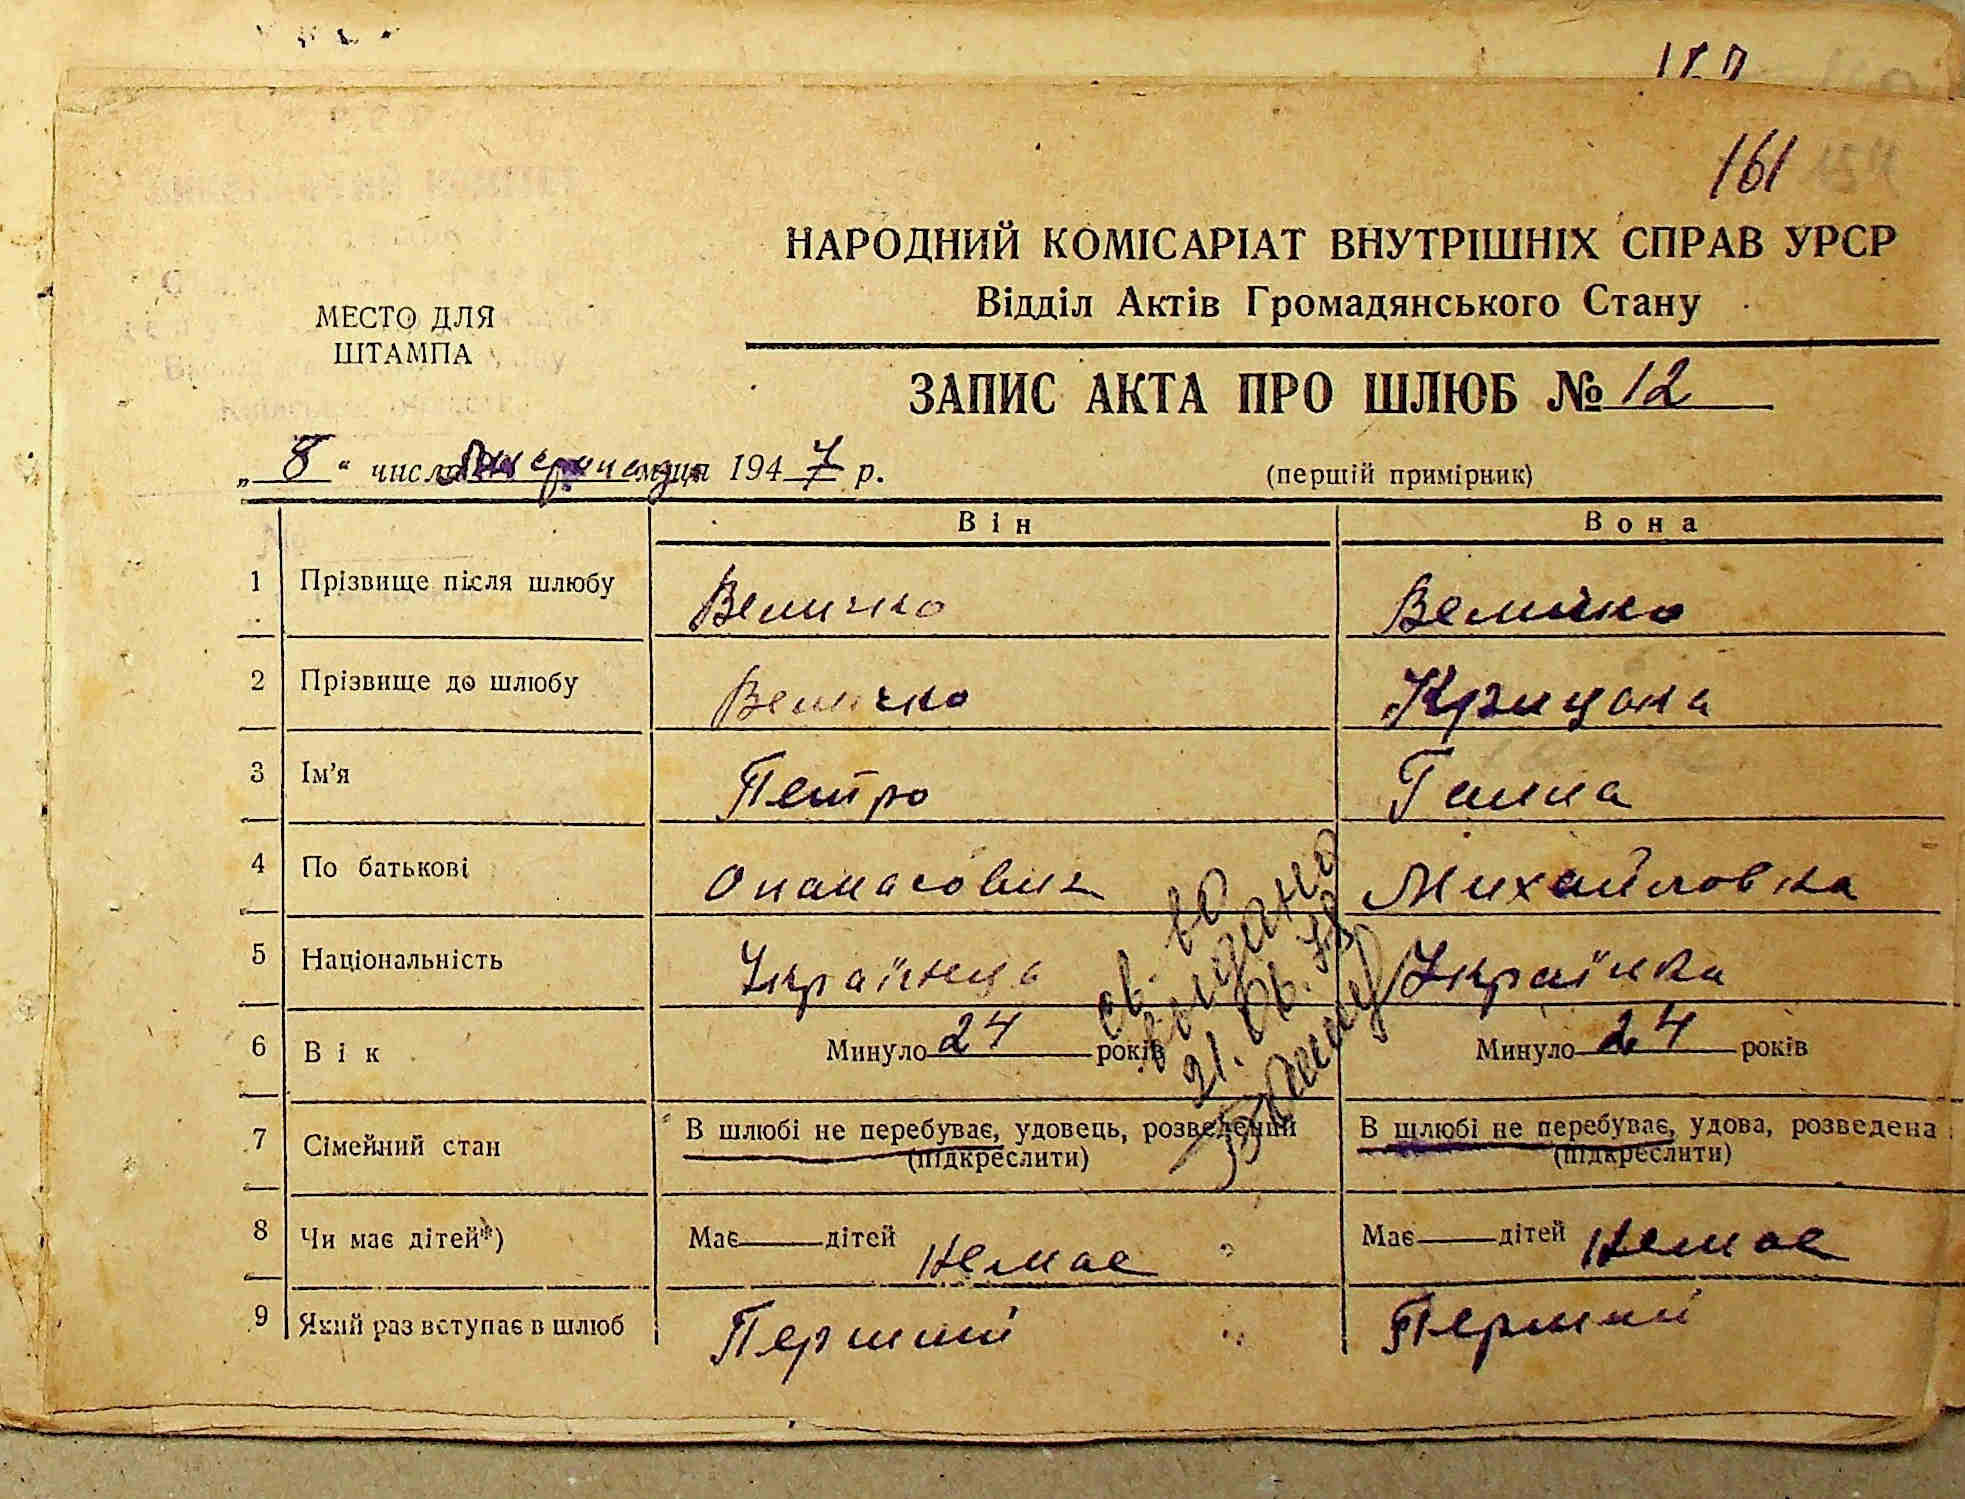 161
НАРОДНИЙ КОМІСАРІАТ ВНУТРІШНІХ СПРАВ УРСР
Відділ Актів Громадянського Стану
МЕСТО ДЛЯ
ШТАМПА
ЗАПИС АКТА ПРО ШЛЮБ № 12
„ 8 " числа місяця 1947 р.
(першій примірник)
Він Вона
1 Прізвище після шлюбу Величко Величко
2 Прізвище до шлюбу Величко
3 Ім'я Петро Галина
4 По батькові Опанасович Михайловна
5 Національність Українець Українка
6 Вік Минуло 24 років Минуло 24 років
св. во
видано
21. 06. 78
7 Сімейний стан В шлюбі не перебуває, удовець, розведений В шлюбі не перебуває, удова, розведена
(підкреслити) (підкреслити)
8 Чи має дітей*) Має дітей Немає Має дітей Немає
9 Який раз вступає в шлюб Перший Перший